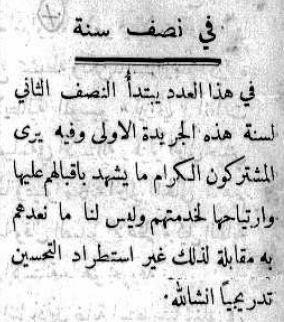 في نصف سنة
في هذا العدد يبتدأُ النصف الثاني
لسنة هذه الجريدة الاولى وفيه يرى
المشتركون الكرام ما يشهد باقبالهم عليها
وارتياحها لخدمتهم وليس لنا ما نعدهم
به مقابلة لذلك غير استطراد التحسين
تدريجياً انشالله٠